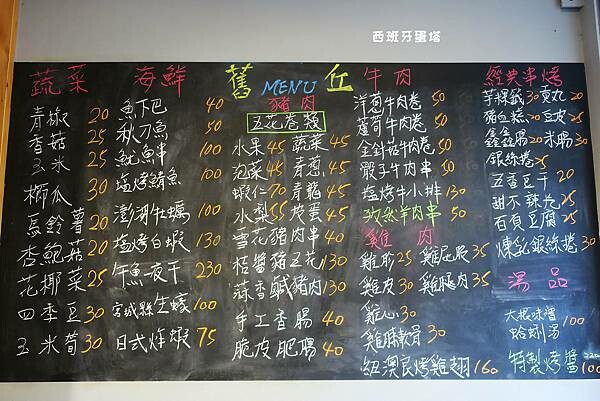 西班牙蛋塔
舊 MENU 丘
蔬菜
青椒 20
香菇 25
玉米 25
櫛瓜 30
馬鈴薯 20
杏鮑菇 20
花椰菜 25
四季豆 30
玉米筍 30
海鮮
魚下巴 40
秋刀魚 50
魷魚串 100
塩烤鯖魚
澎湖牡蠣 100
塩烤白蝦 130
午魚一夜干 230
宮城縣生蠔 100
日式炸蝦 75
豬肉
五花卷類
水果 45 蔬菜 45
泡菜 45 青蔥 45
蝦仁 70 青龍 45
水梨 55 皮蛋 45
雪花豬肉串 40
梧醬豬五花 130
蒜香鹹豬肉 130
手工香腸 40
脆皮肥腸 40
牛肉
洋蔥牛肉卷 50
蘆筍牛肉卷 50
金針菇牛肉卷 50
骰子牛肉串 50
塩烤牛小排 130
孜然羊肉串 50
雞肉
雞胗 25 雞屁股 35
雞皮 30 雞腿肉 35
雞心 30
雞膝軟骨 30
紐澳良烤雞翅 160
經典串烤
芋粿籤 30 貢丸 20
豬血糕 30 豆皮 25
鑫鑫腸 20 米腸 30
銀絲卷 25
五香豆干 20
甜不辣 25
百頁豆腐 25
煉乳銀絲卷 30
湯品
大根味噌
蛤蜊湯 100
特製烤醬 220
100